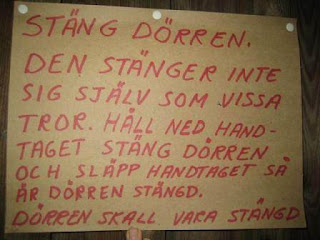 STÄNG DÖRREN.
DEN STÄNGER INTE
SIG SJÄLV SOM VISSA
TROR. HÅLL NED HAND-
TAGET STÄNG DÖRREN
OCH SLÄPP HANDTAGET SÅ
ÄR DÖRREN STÄNGD.
DÖRREN SKALL VARA STÄNGD